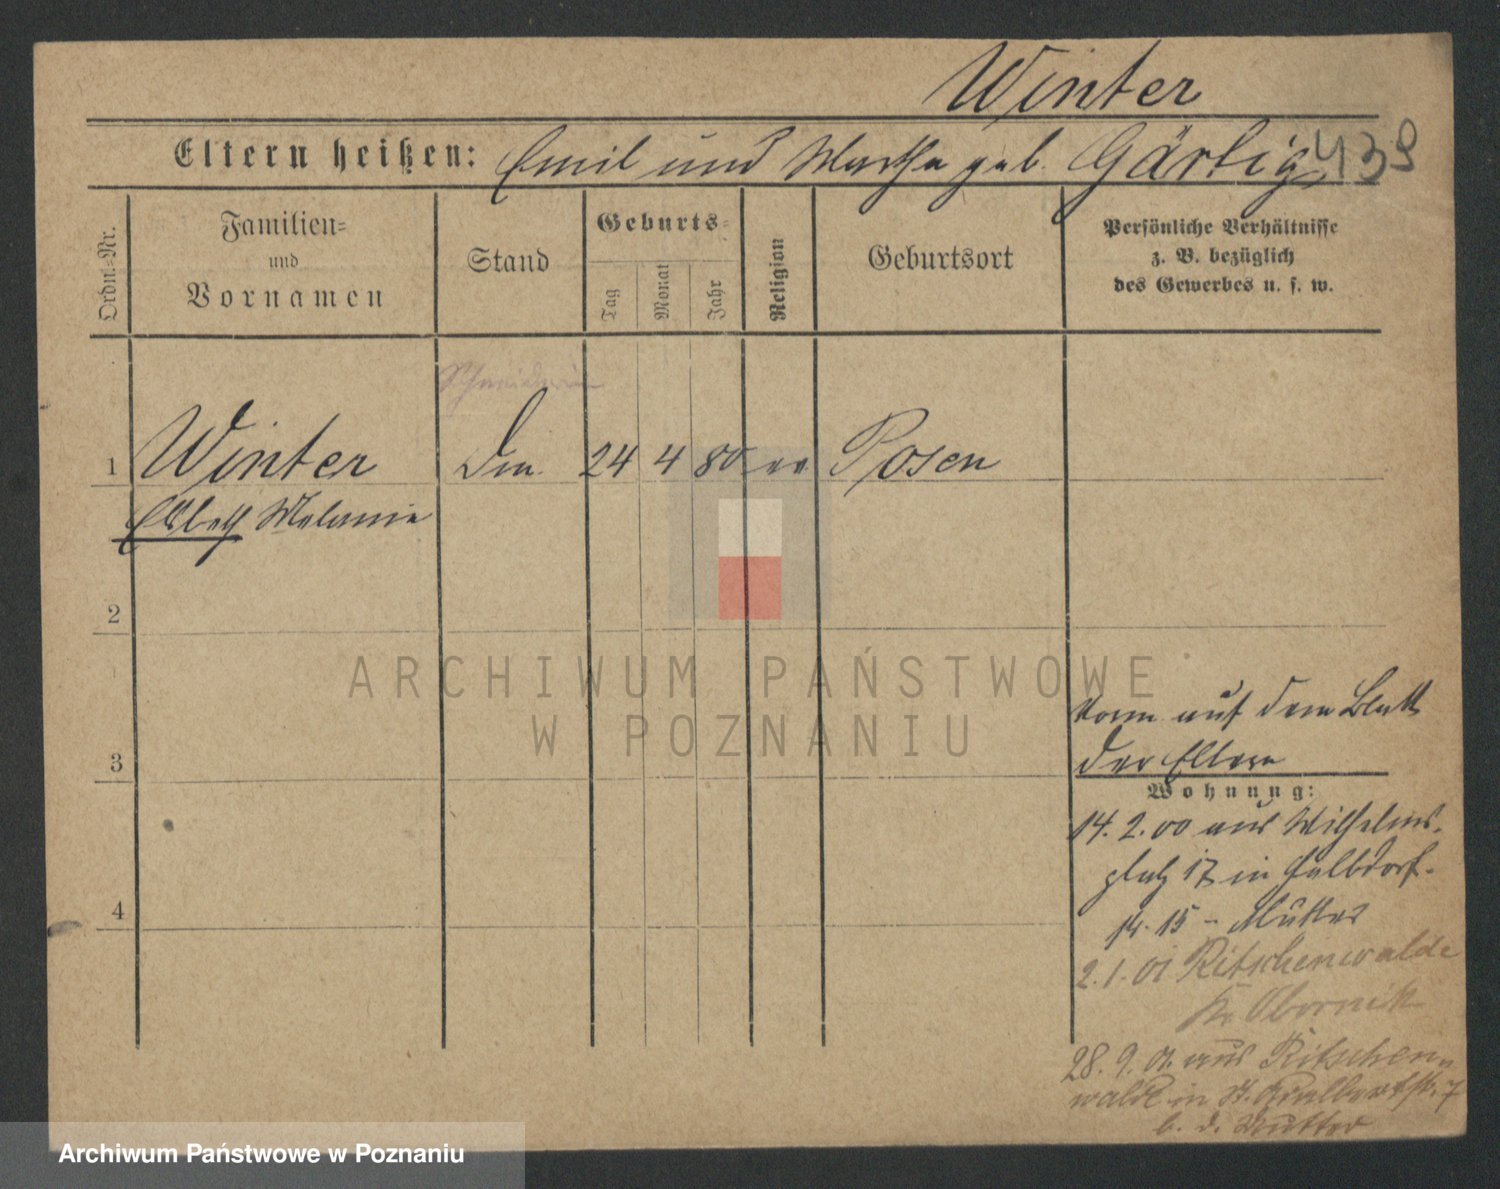 Winter
Eltern heißen: Emil und Martha geb. Gärtig 439
Ordn.=Nr.
Familien=
und
Vornamen
Stand
Geburts=
Tag
Monat
Jahr
Religion
Geburtsort
Persönliche Verhältnisse
z. B. bezüglich
des Gewerbes u. s. w.
Schneiderin
1 Winter 24 4 80 ev Posen
Elsbeth Melanie
2
3
4
vorm auf dem Blatt
der Eltern
Wohnung:
14. 2. 00 aus Wilhelms-
platz 17 in Halbdorf-
14. 15 - Mutter
2. 1. 01 Ritschenwalde
Kr. Obornik
28. 9. 01. aus Ritschen-
walde in St. Adalbertstr. 7
b. d. Mutter
ARCHIWUM PAŃSTWOWE
W POZNANIU
Archiwum Państwowe w Poznaniu